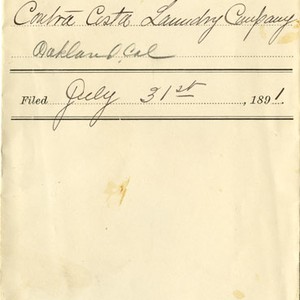 Contra Costa Laundry Company
Oakland, Cal
Filed July 31st, 1891.